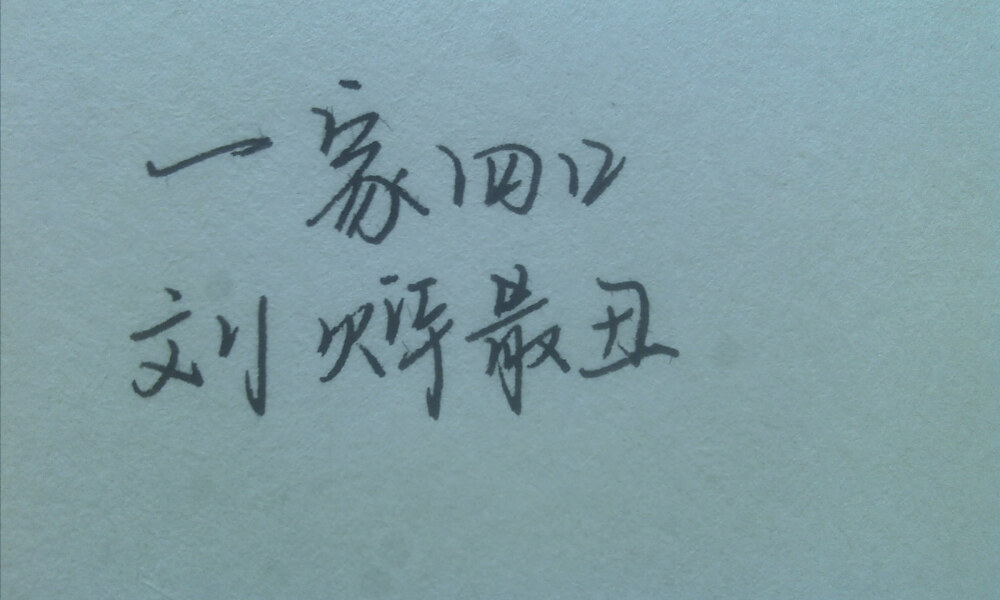 一家四口
刘烨最丑